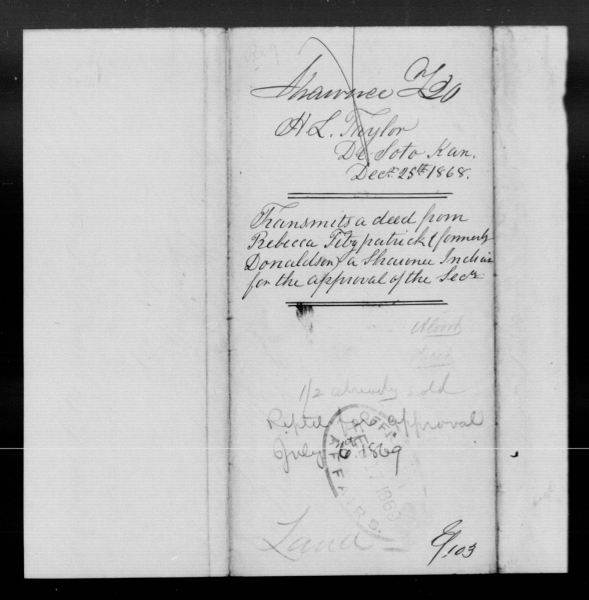 Shawnee T 20
H. L. Taylor
De Soto Kan.
Dec. 25th 1868.
Transmits a deed from
Rebecca Fitzpatrick (formerly
Donaldson) a Shawnee Indian
for the approval of the Secy
1/2 already sold
Reptd for approval
July 6 1869
OFFICE
7 1869
AFFAIRS.
Land
103